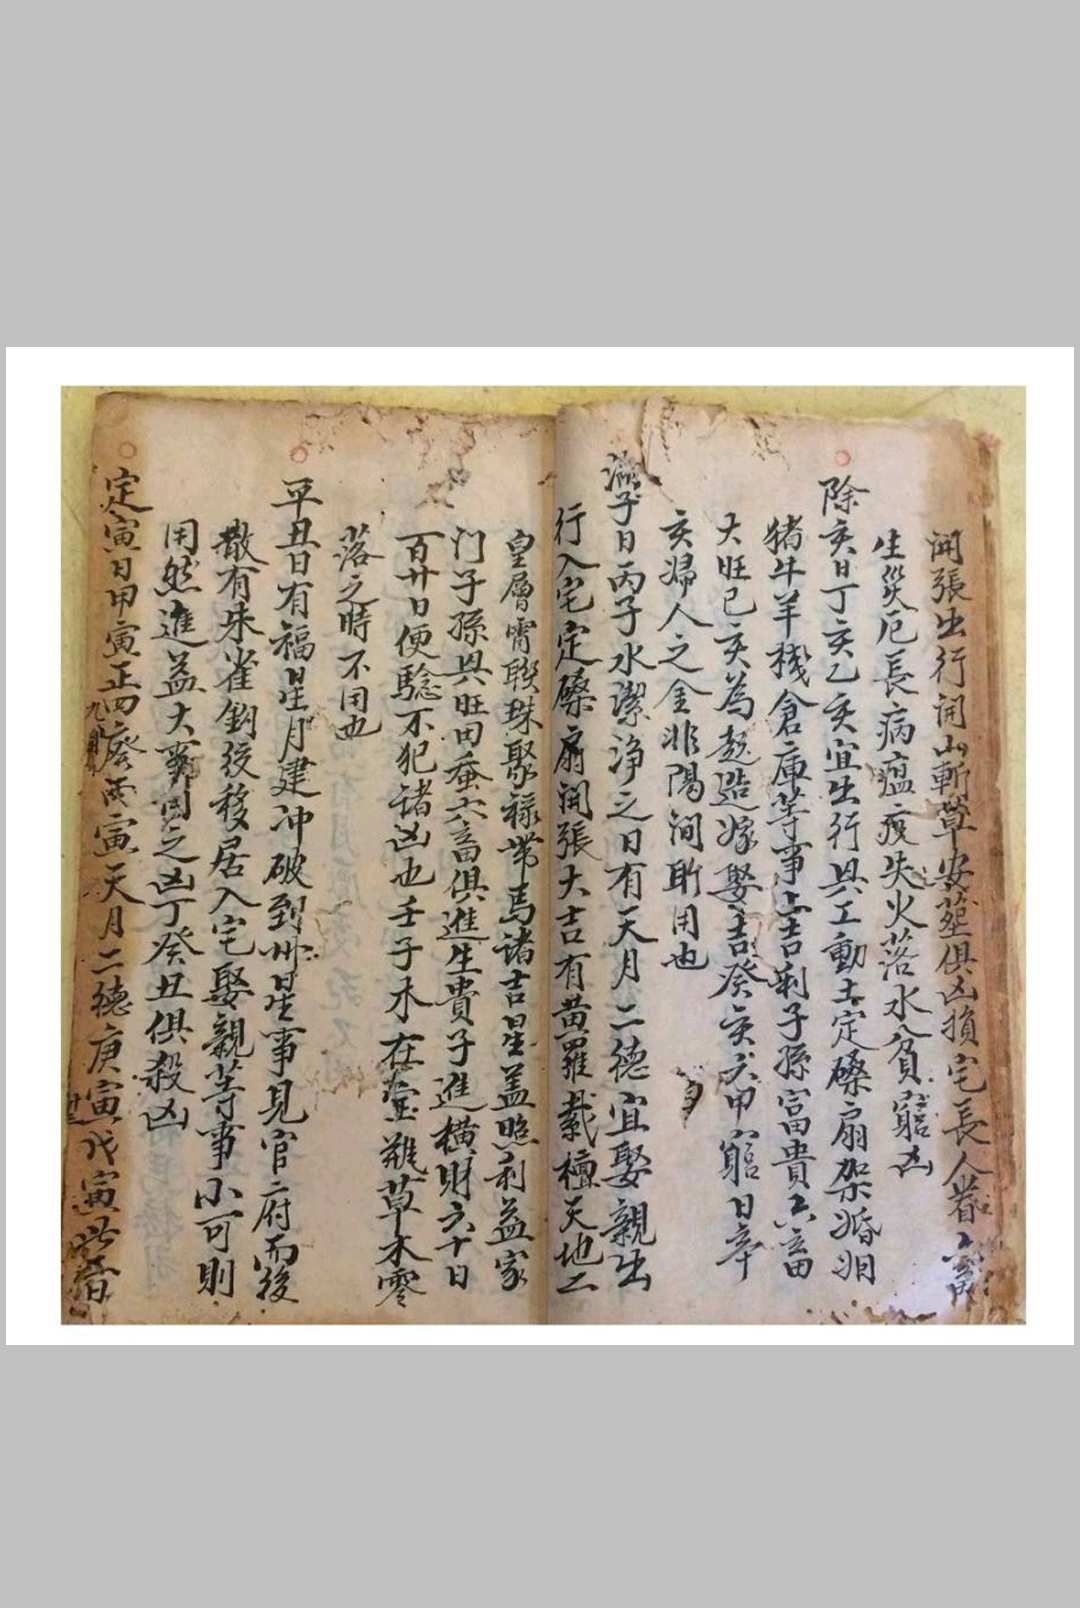 開張出行開山斬草安塟俱凶損宅長人眷六畜
生災厄長病瘟疫失火落水貧窮凶
除亥日丁亥乙亥宜出行具工動土定磉扇架婚姻
猪牛羊棧倉庫等事上吉利子孫富貴六畜
大旺己亥為起造嫁娶吉癸亥六甲窮日辛
亥婦人之金非陽間所用也
滿子日丙子水潔净之日有天月二德宜娶親出
行入宅定磉扇開張大吉有黃羅紫檀天地二
皇層霄聯珠聚禄帶馬諸吉星盖照利益家
门子孫具旺田蚕六畜俱進生貴子進橫財六十日
百廿日便驗不犯诸凶也壬子木在草木零
落之時不用也
平丑日有福星月建冲破到州星事見官府而後
散有朱雀鈎絞移居入宅娶親等事小可則
用然進益大事用之凶丁癸丑俱殺凶
定寅日甲寅正四廢丙寅天月二德庚寅戊寅此皆